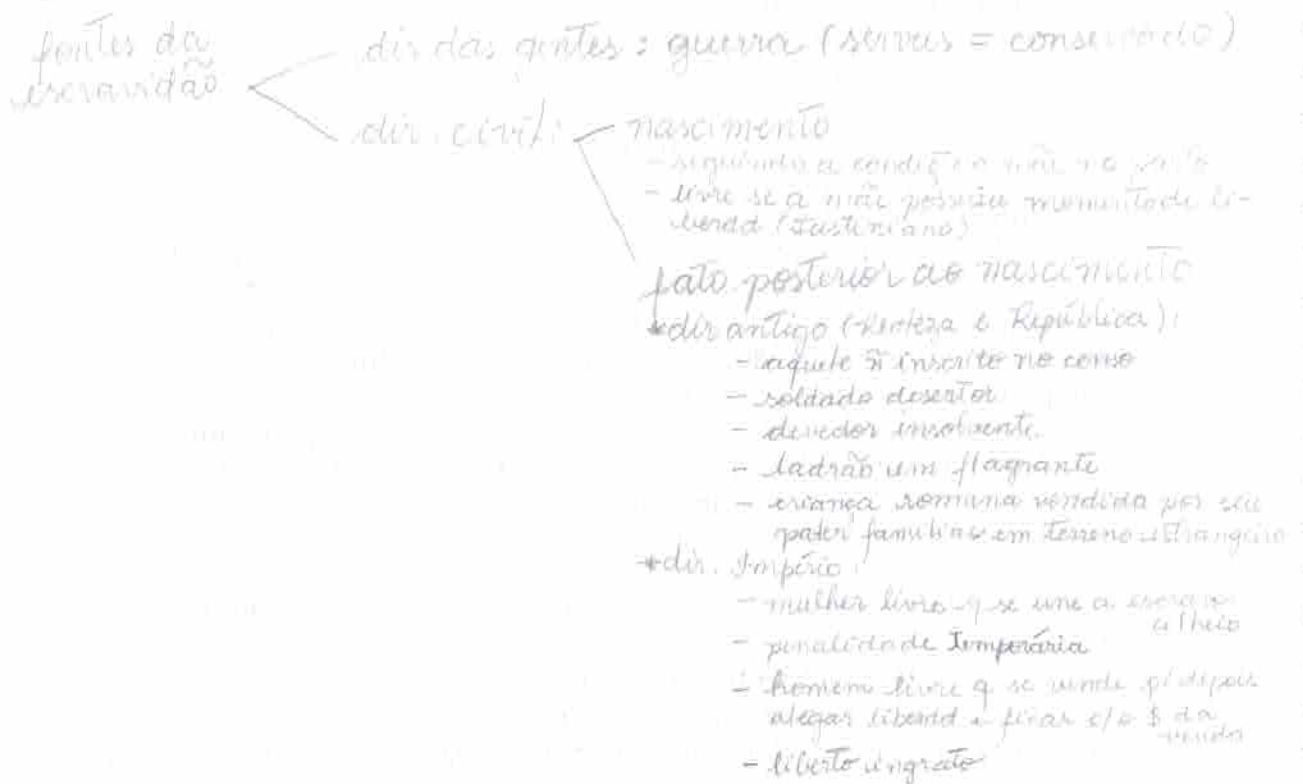 fontes da
escravidão
dir das gentes: guerra (servus = conservado)
dir. civil:
nascimento
- seguindo a condição mãe no parto
- livre se a mãe possuiu momento de li-
berdd (Justiniano)
fato posterior ao nascimento
*dir antigo (Realeza e República):
- aquele ñ inscrito no censo
- soldado desertor
- devedor insolvente
- ladrão em flagrante
- criança romana vendida por seu
pater familias em terreno estrangeiro
*dir. Império:
- mulher livre q se une a escravo
alheio
- penalidade temporária
- homem livre q se vende p/ depois
alegar liberdd e ficar c/ o $ da
venda
- liberto ingrato